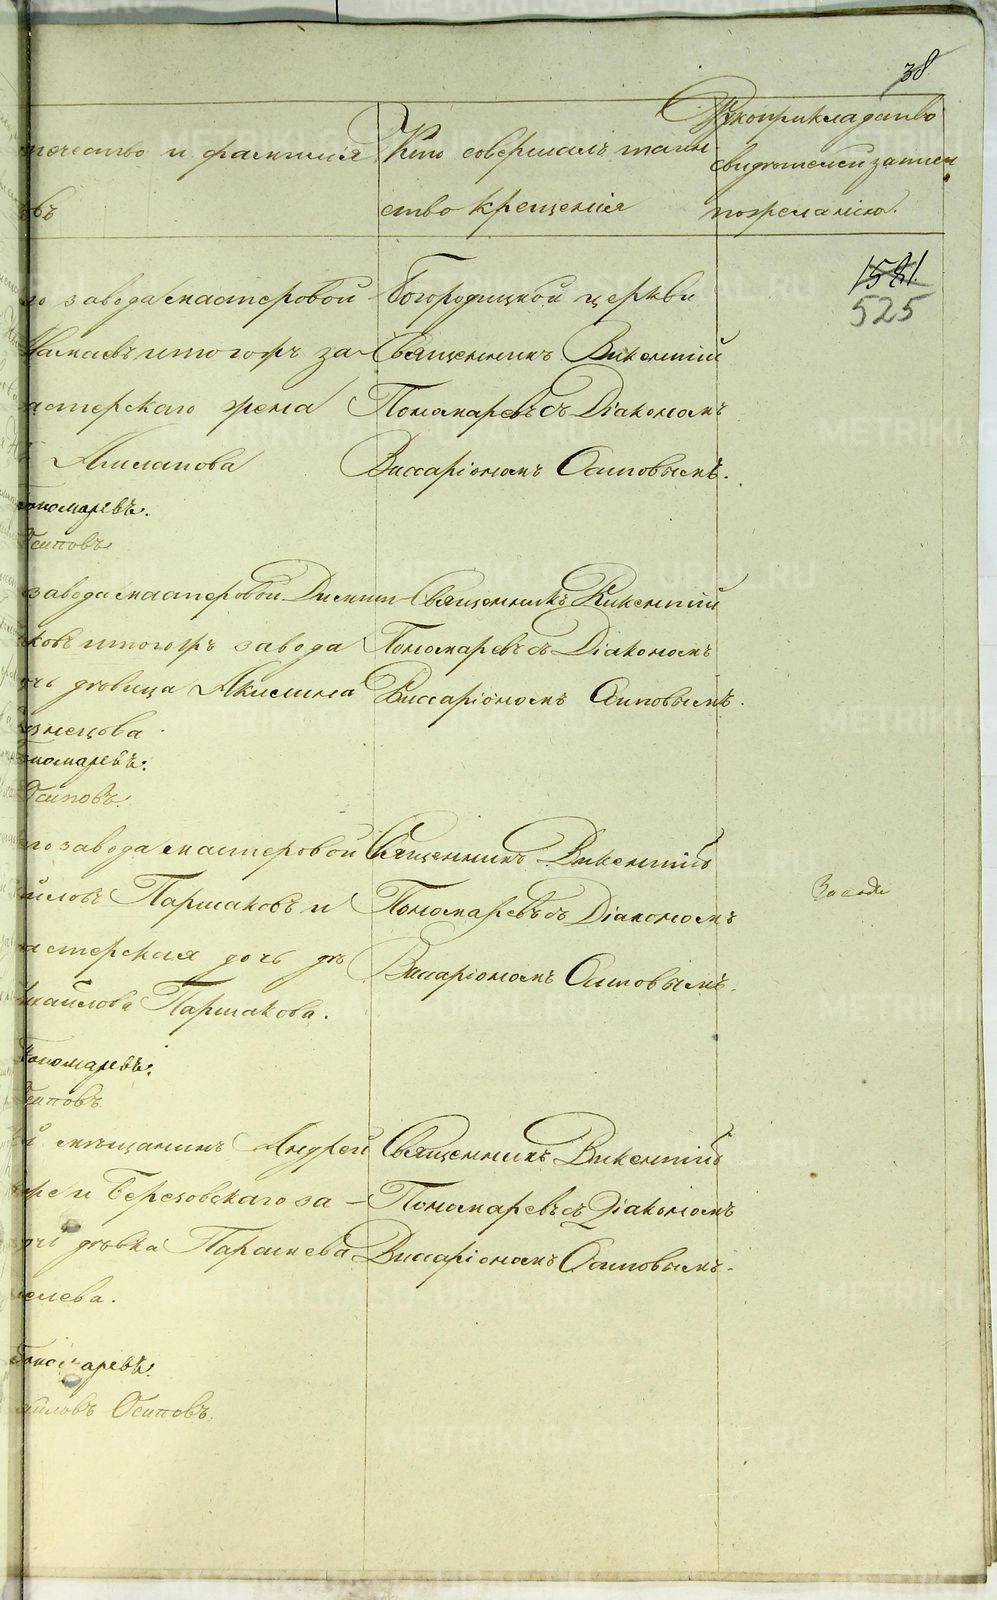 38
течество и фамилія
Кто совершалъ таин-
ство крещенія
Рукоприкладство
свидѣтелей записи
по желанію.
1581.
525
го завода мастеровой
тогожъ за-
мастерскаго жена
пономаревъ.
Осиповъ
Богородицкой церкви
Священникъ Викентій
Пономаревъ съ Діакономъ
Виссаріономъ Осиповымъ.
завода мастеровой
ковъ и тогожъ завода
очь дѣвица Акилина
знецова
пономаревъ.
Осиповъ.
Священникъ Викентій
Пономаревъ съ Діакономъ
Виссаріономъ Осиповымъ.
го завода мастеровой
йловъ Паршаковъ и
мастерская дочь дѣ
ихайлова Паршакова.
Пономаревъ.
Осиповъ
Священникъ Викентій
Пономаревъ съ Діакономъ
Виссаріономъ Осиповымъ.
й мѣщанинъ Андрей
Березовскаго за-
очь дѣвка
елева.
Пономаревъ.
айловъ Осиповъ.
Священникъ Викентій
Пономаревъ съ Діакономъ
Виссаріономъ Осиповымъ.
METRIKI.GASO-URAL.RU